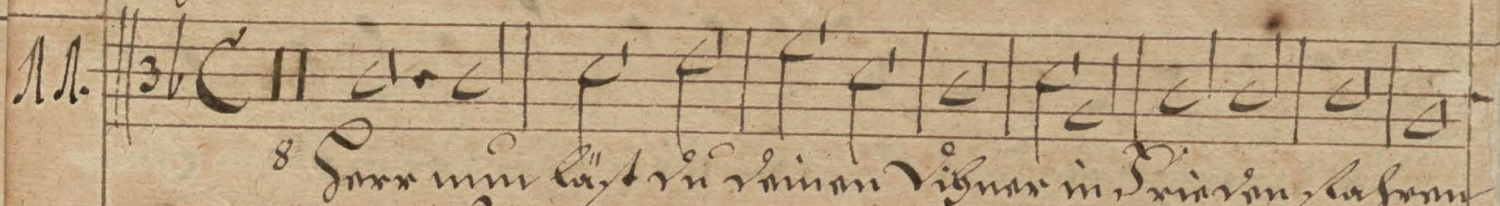 11.
8 Herr nun läst du deinen Diener in Frieden fahren